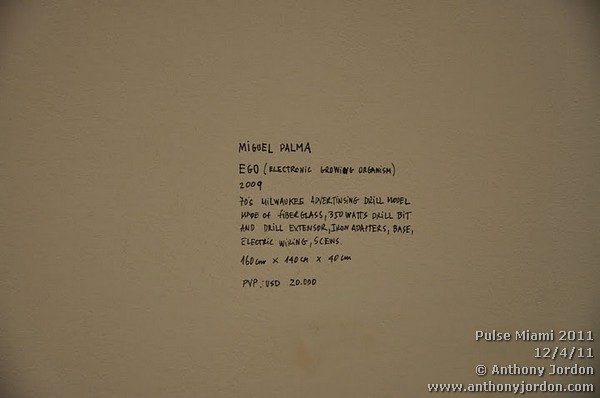 MIGUEL PALMA
EGO (ELECTRONIC GROWING ORGANISM)
2009
70's MILWAUKEE ADVERTINSING DRILL MODEL
MADE OF FIBERGLASS, 350 WATTS DRILL BIT
AND DRILL EXTENSOR, IRON ADAPTERS, BASE,
ELECTRIC WIRING, SCEWS.
160cm x 140cm x 40cm
PVP: USD 20.000
Pulse Miami 2011
12/4/11
© Anthony Jordon
www.anthonyjordon.com